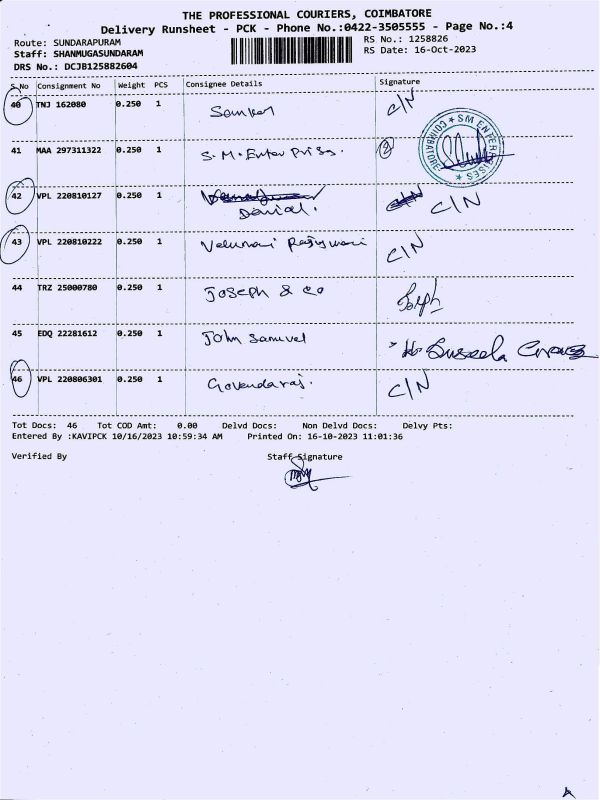 THE PROFESSIONAL COURIERS, COIMBATORE
Delivery Runsheet - PCK - Phone No.:0422-3505555 - Page No.:4
Route: SUNDARAPURAM RS No.: 1258826
Staff: SHANMUGASUNDARAM RS Date: 16-Oct-2023
DRS No.: DCJB125882604
S.No Consignment No Weight PCS Consignee Details Signature
40 TNJ 162080 0.250 1 C/N
41 MAA 297311322 0.250 1 S.M. Enter prises. 2 SM ENTERPRISES COIMBATORE
42 VPL 220810127 0.250 1 Danial. C/N
43 VPL 220810222 0.250 1 C/N
44 TRZ 25000780 0.250 1 Joseph & co
45 EDQ 22281612 0.250 1 John Samuel Suseela
46 VPL 220806301 0.250 1 Govendaraj. C/N
Tot Docs: 46 Tot COD Amt: 0.00 Delvd Docs: Non Delvd Docs: Delvy Pts:
Entered By :KAVIPCK 10/16/2023 10:59:34 AM Printed On: 16-10-2023 11:01:36
Verified By Staff Signature